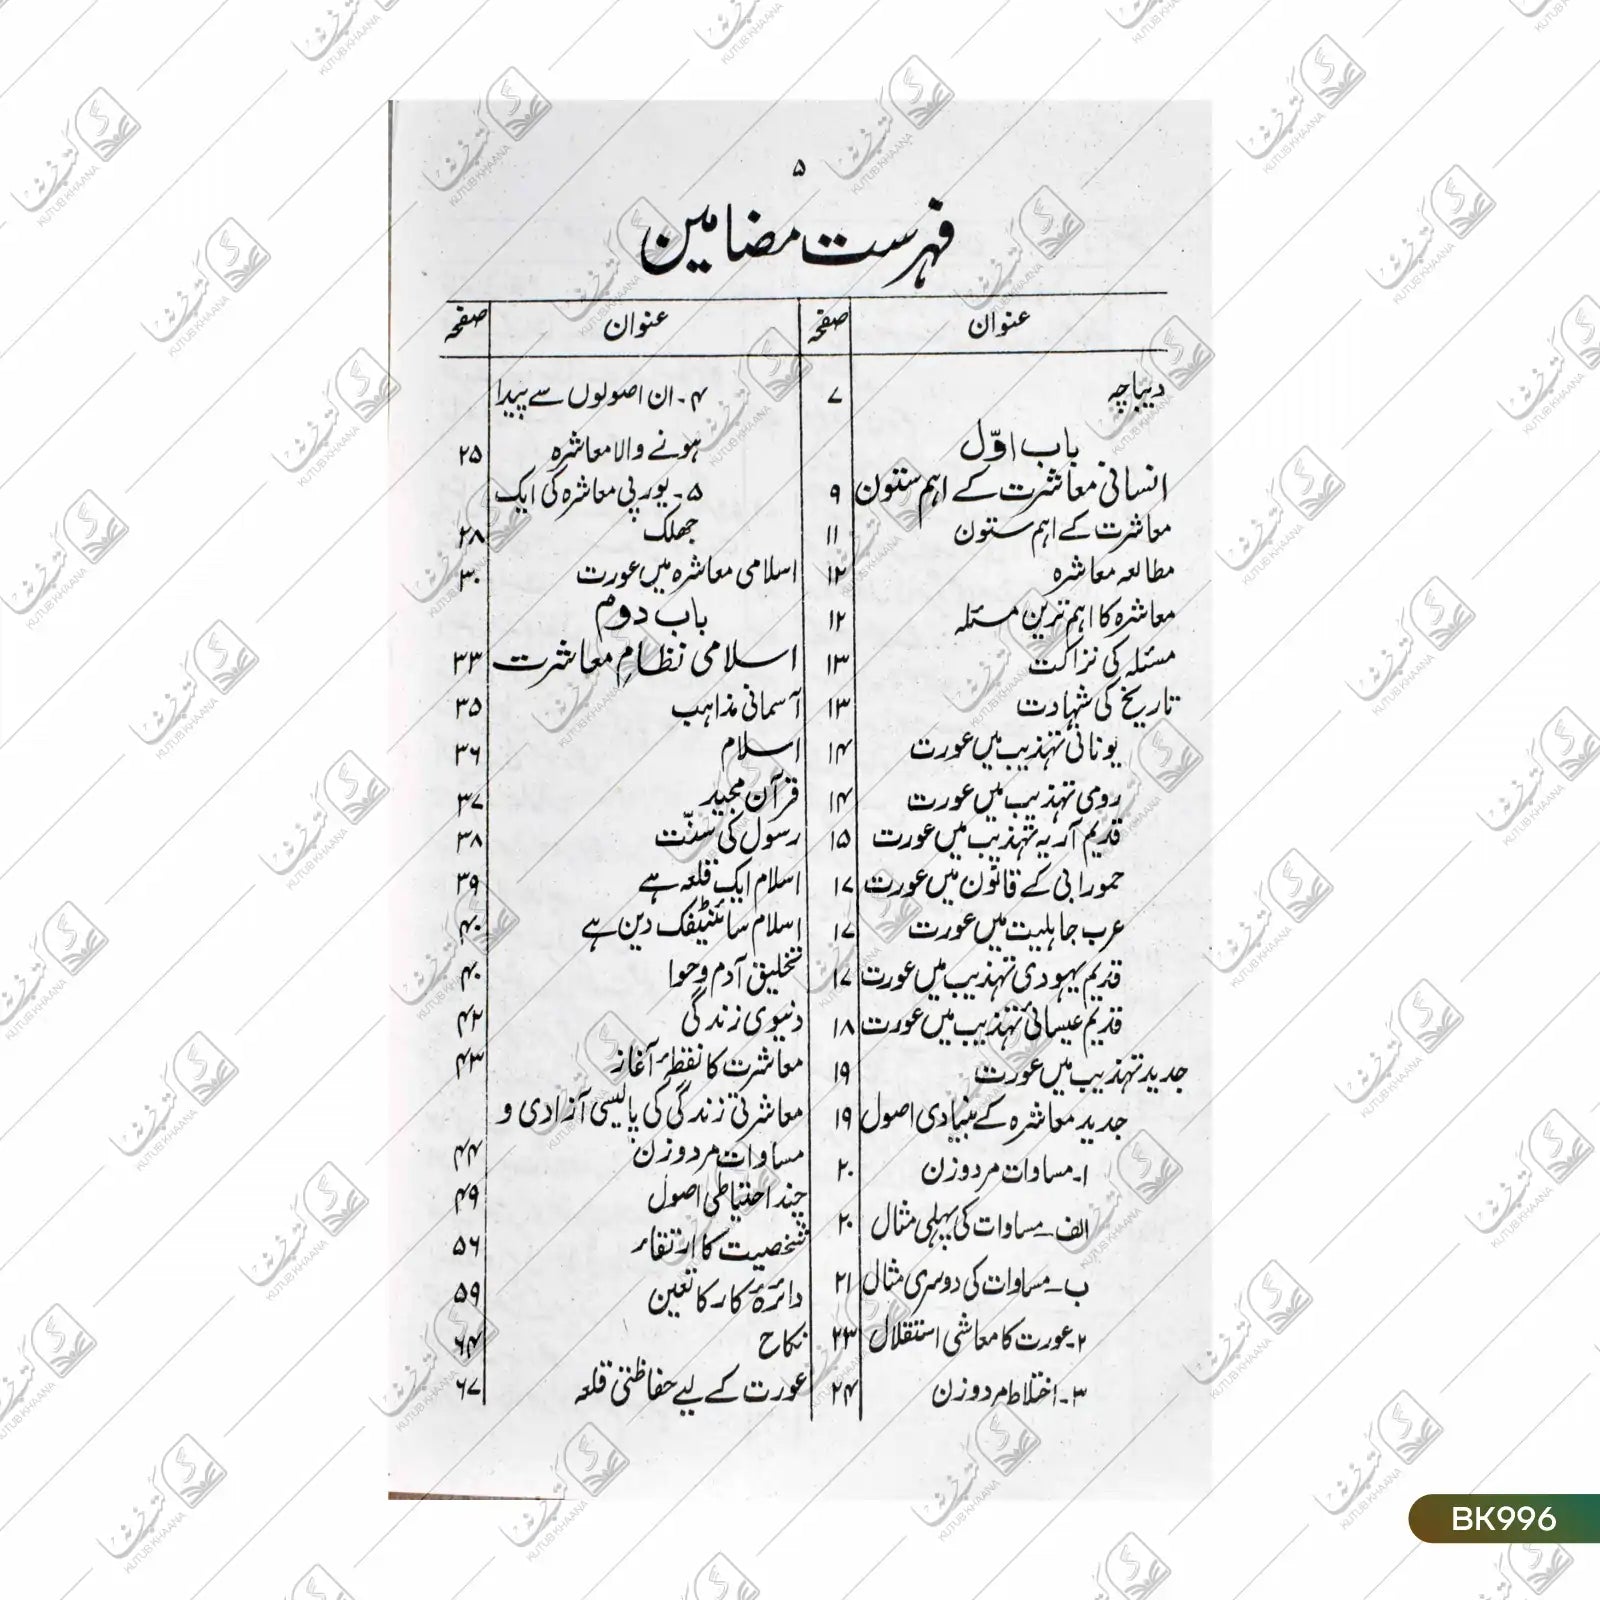 ۵
فہرست مضامین
عنوان صفحہ
دیباچہ ۷
باب اوّل
انسانی معاشرت کے اہم ستون ۹
معاشرت کے اہم ستون ۱۱
مطالعہ معاشرہ ۱۲
معاشرہ کا اہم ترین مسئلہ ۱۲
مسئلہ کی نزاکت ۱۳
تاریخ کی شہادت ۱۳
یونانی تہذیب میں عورت ۱۴
رومی تہذیب میں عورت ۱۴
قدیم آریہ تہذیب میں عورت ۱۵
حمورابی کے قانون میں عورت ۱۷
عرب جاہلیت میں عورت ۱۷
قدیم یہودی تہذیب میں عورت ۱۷
قدیم عیسائی تہذیب میں عورت ۱۸
جدید تہذیب میں عورت ۱۹
جدید معاشرہ کے بنیادی اصول ۱۹
۱۔ مساوات مرد و زن ۲۰
الف۔ مساوات کی پہلی مثال ۲۰
ب۔ مساوات کی دوسری مثال ۲۱
۲۔ عورت کا معاشی استقلال ۲۳
۳۔ اختلاط مرد و زن ۲۴
عنوان صفحہ
۴۔ ان اصولوں سے پیدا
ہونے والا معاشرہ ۲۵
۵۔ یورپی معاشرہ کی ایک
جھلک ۲۸
اسلامی معاشرہ میں عورت ۳۰
باب دوم
اسلامی نظامِ معاشرت ۳۳
آسمانی مذاہب ۳۵
اسلام ۳۶
قرآن مجید ۳۷
رسول کی سنّت ۳۸
اسلام ایک قلعہ ہے ۳۹
اسلام سائنٹیفک دین ہے ۴۰
تخلیق آدم و حوا ۴۰
دنیوی زندگی ۴۲
معاشرت کا نقطۂ آغاز ۴۳
معاشرتی زندگی کی پالیسی آزادی و
مساوات مرد و زن ۴۴
چند احتیاطی اصول ۴۹
شخصیت کا ارتقاء ۵۶
دائرۂ کار کا تعین ۵۹
نکاح ۶۴
عورت کے لیے حفاظتی قلعہ ۶۷
BK996
کتب خانہ
KUTUB KHAANA